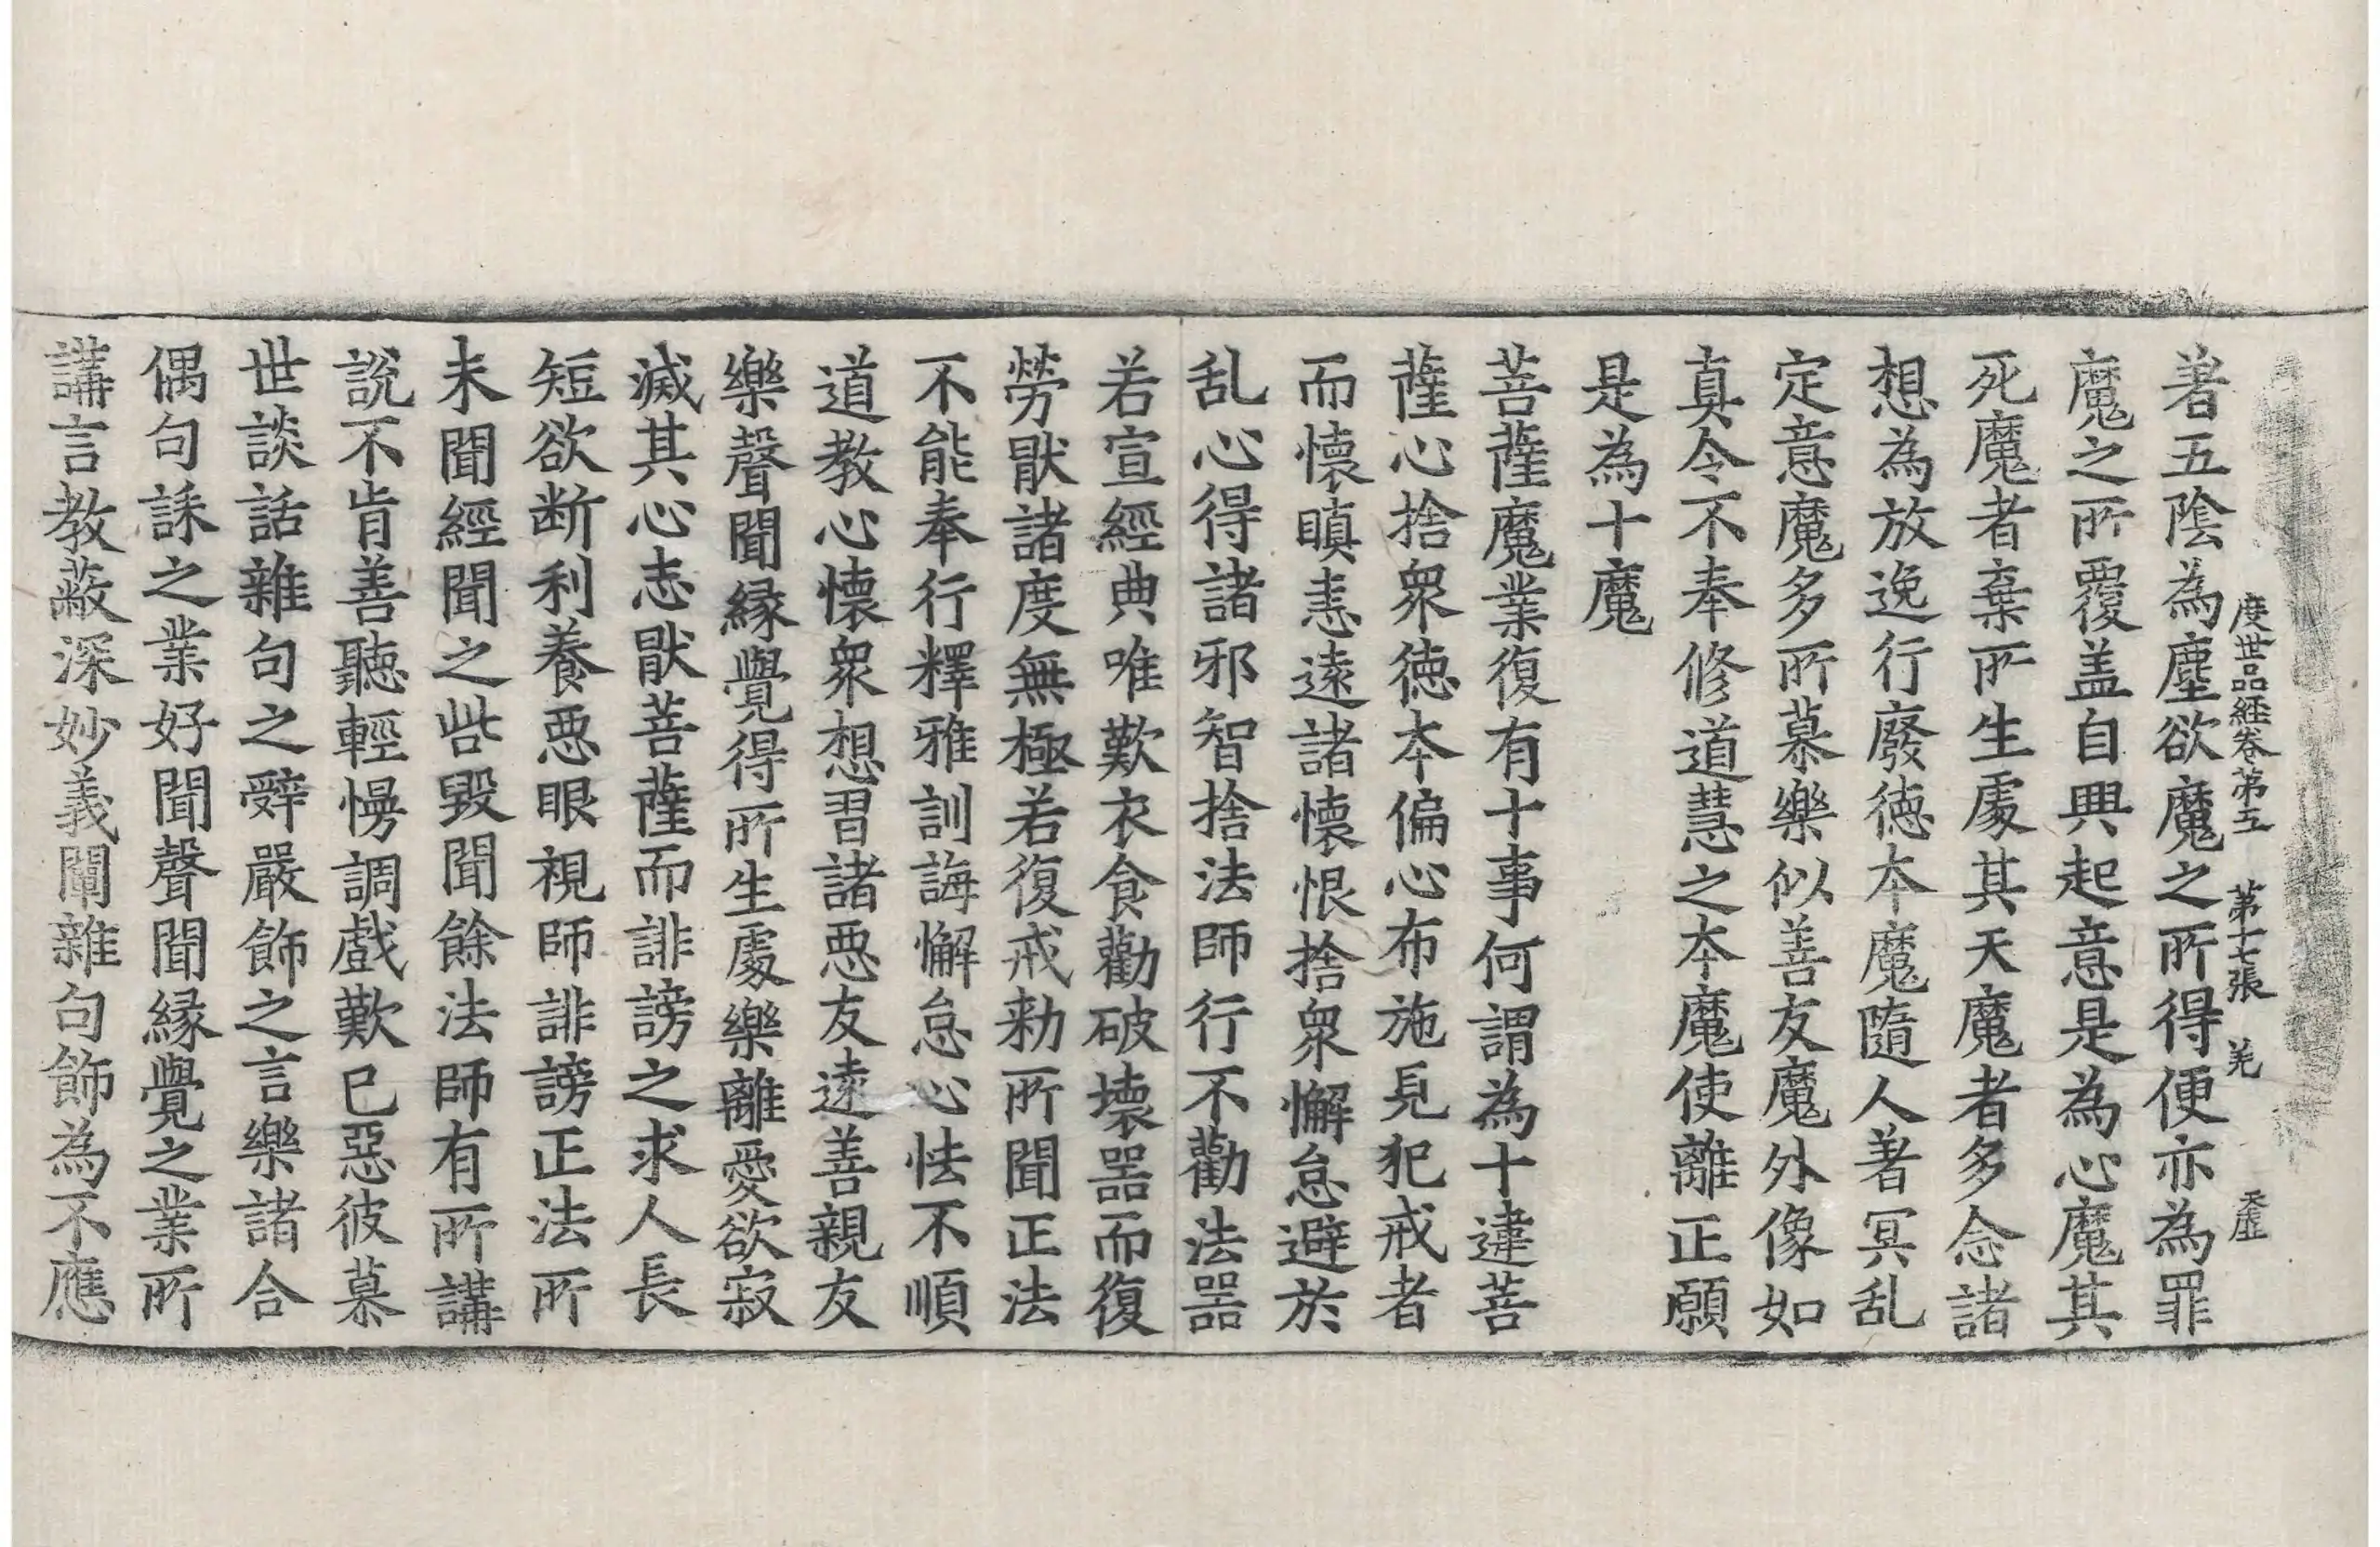 度世品經卷第五 第十七張 羌
著五陰為塵欲魔之所得便亦為罪
魔之所覆盖自興起意是為心魔其
死魔者棄所生處其天魔者多念諸
想為放逸行廢德本魔隨人著冥乱
定意魔多所慕樂似善友魔外像如
真令不奉修道慧之本魔使離正願
是為十魔
菩薩魔業復有十事何謂為十違菩
薩心捨衆德本偏心布施見犯戒者
而懷瞋恚遠諸懷恨捨衆懈怠避於
乱心得諸邪智捨法師行不勸法器
若宣經典唯歎衣食勸破壞器而復
勞猒諸度無極若復戒勑所聞正法
不能奉行釋雅訓誨懈怠心怯不順
道教心懷衆想習諸惡友遠善親友
樂聲聞縁覺得所生處樂離愛欲寂
滅其心志猒菩薩而誹謗之求人長
短欲断利養惡眼視師誹謗正法所
未聞經聞之呰毀聞餘法師有所講
說不肯善聽輕慢調戲歎已惡彼慕
世談話雜句之辭嚴飾之言樂諸合
偶句誄之業好聞聲聞縁覺之業所
講言教蔽深妙義闡雜句飾為不應